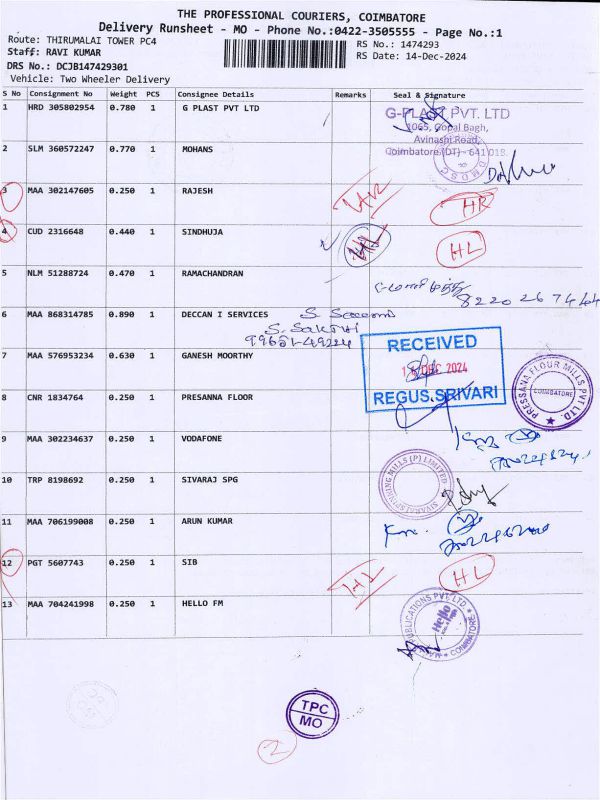 THE PROFESSIONAL COURIERS, COIMBATORE
Delivery Runsheet - MO - Phone No.:0422-3505555 - Page No.:1
Route: THIRUMALAI TOWER PC4
RS No.: 1474293
Staff: RAVI KUMAR
RS Date: 14-Dec-2024
DRS No.: DCJB147429301
Vehicle: Two Wheeler Delivery
S No Consignment No Weight PCS Consignee Details Remarks Seal & Signature
1 HRD 305802954 0.780 1 G PLAST PVT LTD
G-PLAST PVT. LTD
1065, Gopal Bagh,
Avinashi Road,
Coimbatore (DT) - 641 018.
2 SLM 360572247 0.770 1 MOHANS
3 MAA 302147605 0.250 1 RAJESH
4 CUD 2316648 0.440 1 SINDHUJA HL
5 NLM 51288724 0.470 1 RAMACHANDRAN
6 MAA 868314785 0.890 1 DECCAN I SERVICES
S. Sakthi
99651-49224
7 MAA 576953234 0.630 1 GANESH MOORTHY
RECEIVED
DEC 2024
REGUS.SRIVARI
8 CNR 1834764 0.250 1 PRESANNA FLOOR
PRESSANA FLOUR MILLS PVT LTD.
COIMBATORE
9 MAA 302234637 0.250 1 VODAFONE
10 TRP 8198692 0.250 1 SIVARAJ SPG
SIVARAJ SPINNING MILLS (P) LIMITED
11 MAA 706199008 0.250 1 ARUN KUMAR
12 PGT 5607743 0.250 1 SIB HL HL
13 MAA 704241998 0.250 1 HELLO FM
PUBLICATIONS PVT. LTD.
Hello
COIMBATORE
TPC
MO
2